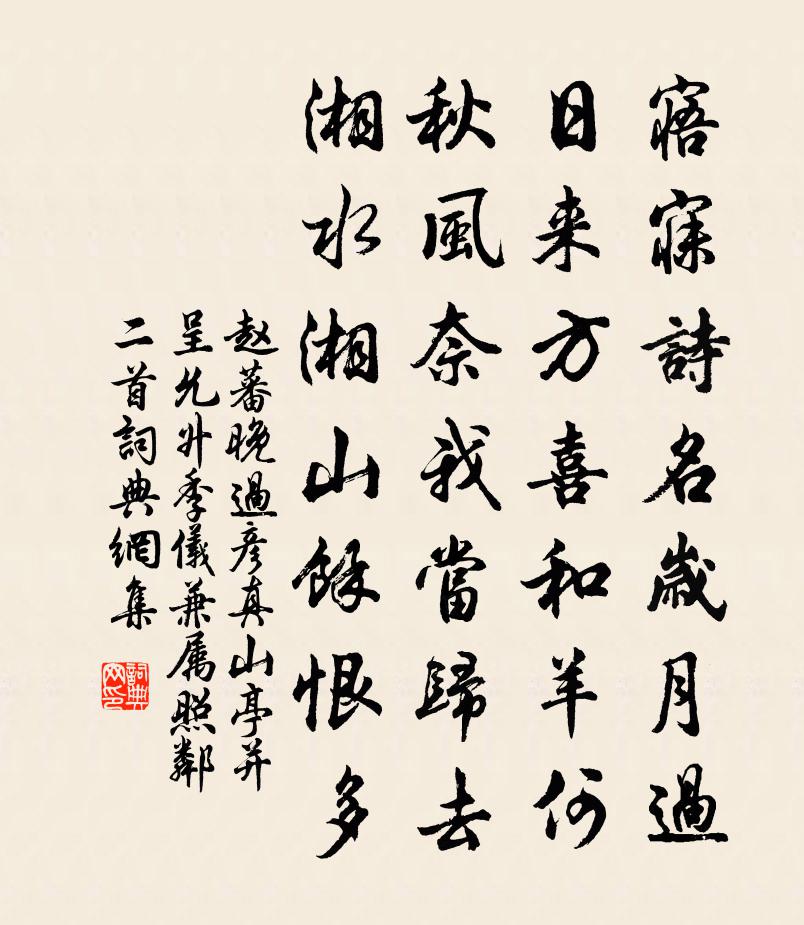 寤寐詩名歲月過
日来方喜和羊何
秋風奈我當歸去
湘水湘山餘恨多
赵蕃晚過彦真山亭并
呈允升季儀兼属照鄰
二首詞典網集
詞典网印